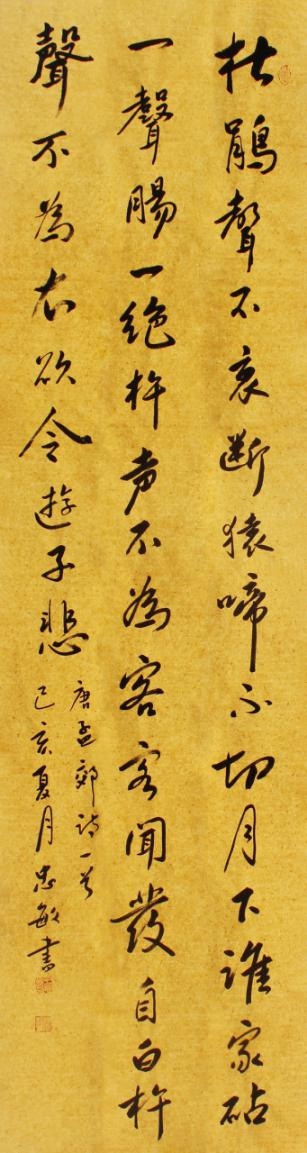 杜鵑聲不哀斷猿啼不切月下誰家砧
一聲腸一絕杵声不為客客聞發自白杵
聲不為衣欲令遊子悲
唐孟郊詩一首
己亥夏月忠敏書